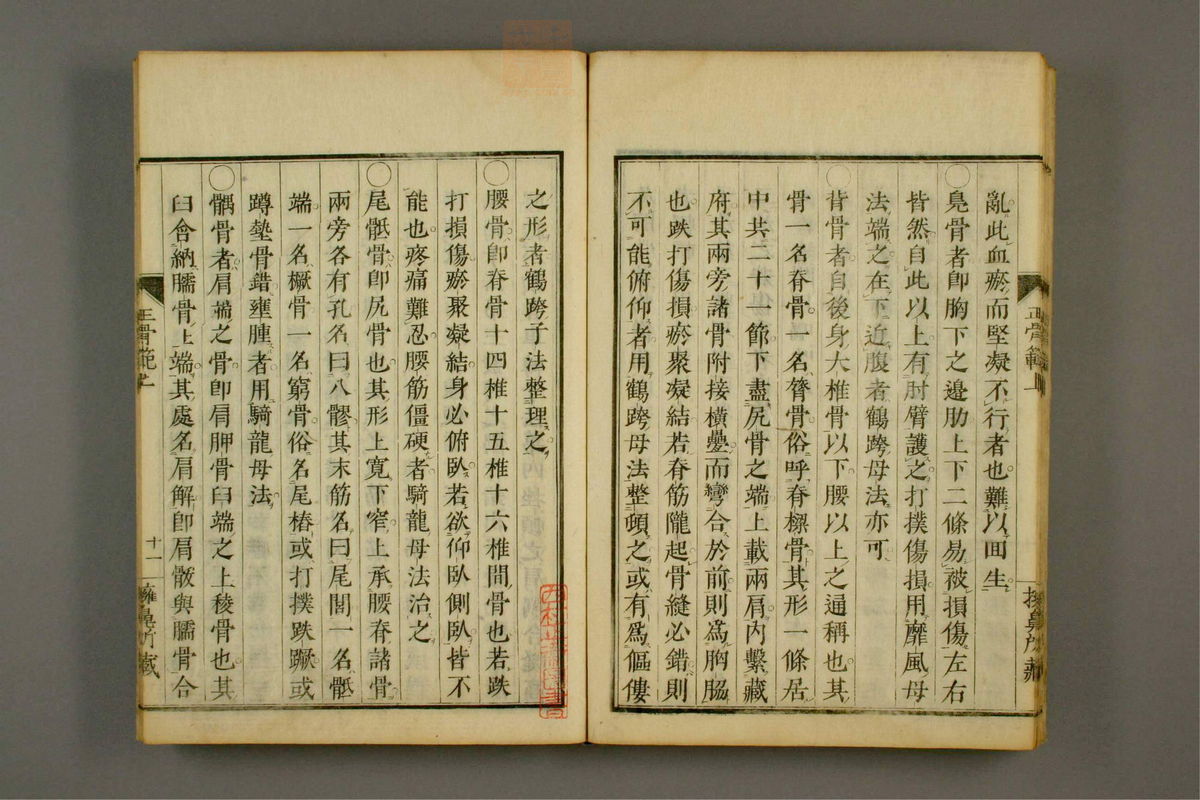 亂此血瘀而堅凝不行者也難以回生
○鳧骨者卽胸下之邊肋上下二條易被損傷左右
皆然自此以上有肘臂護之打撲傷損用靡風母
法端之在下近腹者鶴跨母法亦可
○背骨者自後身大椎骨以下腰以上之通稱也其
骨一名脊骨一名膂骨俗呼脊樑骨其形一條居
中共二十一節下盡尻骨之端上載兩肩內繫藏
府其兩旁諸骨附接橫疊而彎合於前則爲胸脇
也跌打傷損瘀聚凝結若脊筋隴起骨縫必錯則
不可能俯仰者用鶴跨母法整頓之或有爲傴僂
正骨範上
之形者鶴跨子法整理之
○腰骨卽脊骨十四椎十五椎十六椎間骨也若跌
打損傷瘀聚凝結身必俯臥若欲仰臥側臥皆不
能也疼痛難忍腰筋僵硬者騎龍母法治之
○尾骶骨卽尻骨也其形上寬下窄上承腰脊諸骨
兩旁各有孔名曰八髎其末筋名曰尾閭一名骶
端一名橛骨一名窮骨俗名尾樁或打撲跌蹶或
蹲墊骨錯壅腫者用騎龍母法
○髃骨者肩端之骨卽肩胛骨臼端之上稜骨也其
臼含納臑骨上端其處名肩解卽肩骸與臑骨合
正骨範上
十一